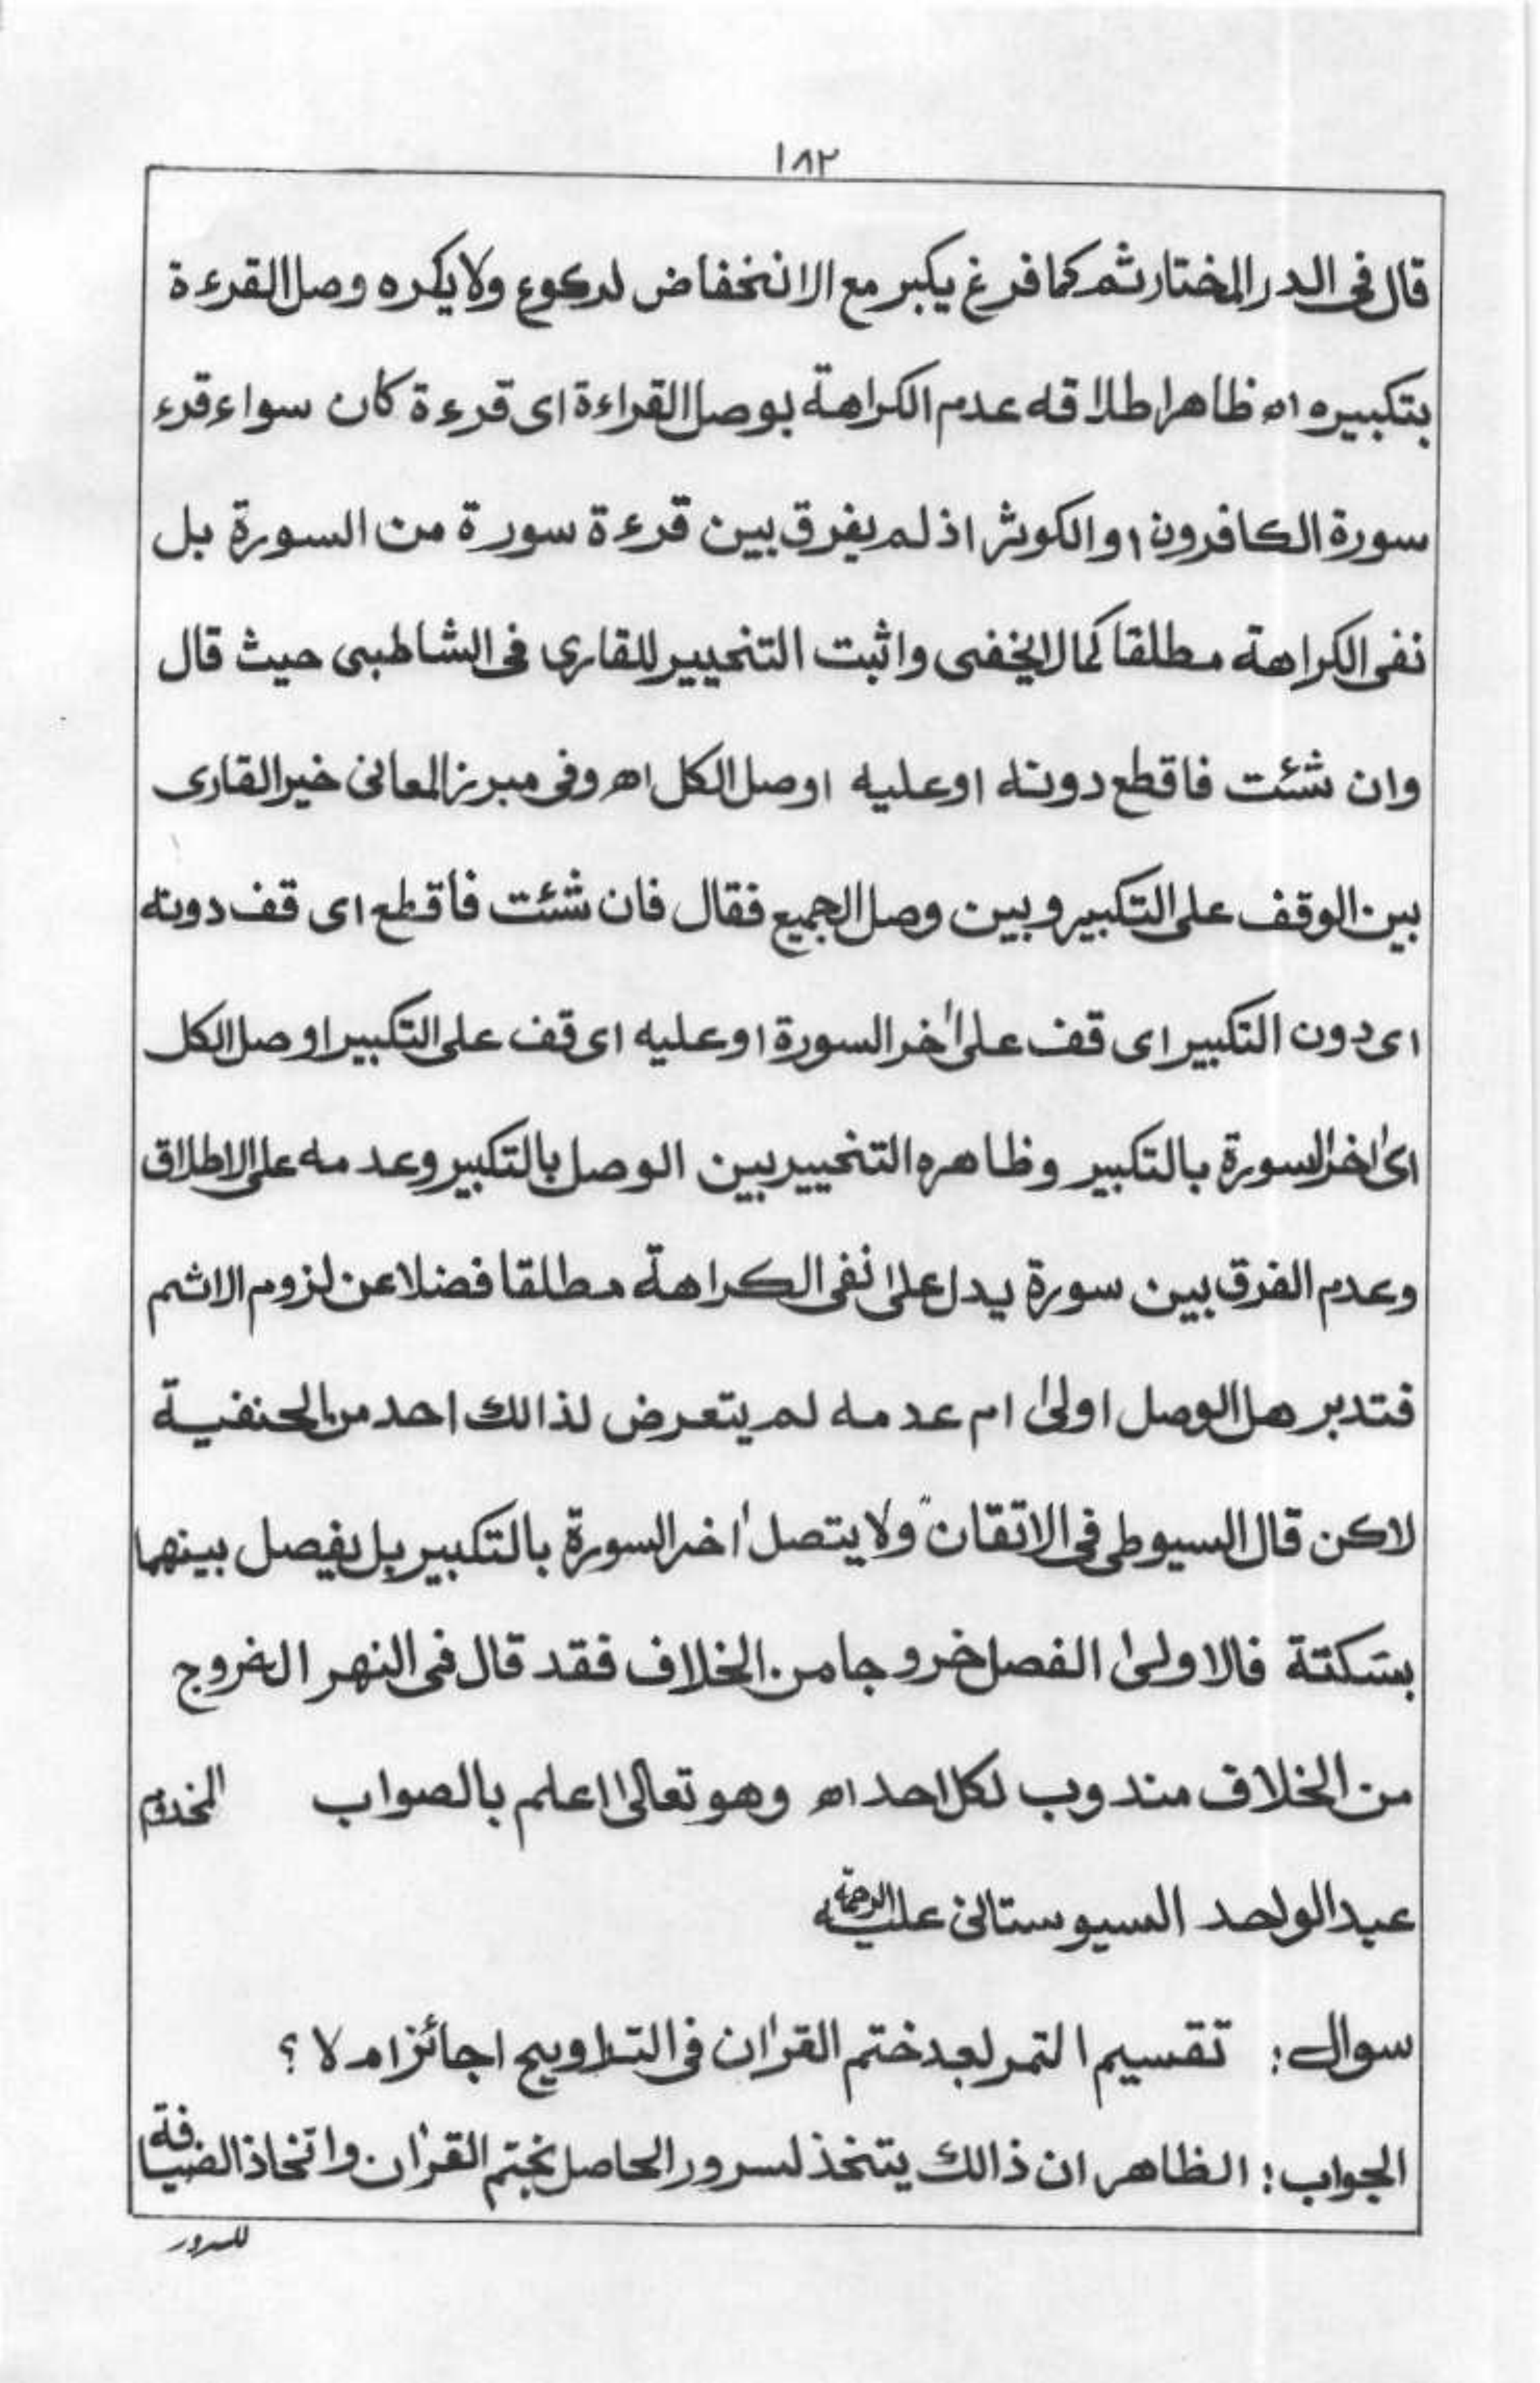 ١٨٢
قال فى الدر المختار ثم كما فرغ يكبر مع الانخفاض لركوع ولا يكره وصل القرءة
بتكبيره اه ظاهر اطلاقه عدم الكراهة بوصل القراءة اى قرءة كان سواء قرء
سورة الكافرون او الكوثر اذ لم يفرق بين قرءة سورة من السورة بل
نفى الكراهة مطلقا كما لا يخفى واثبت التخيير للقارى فى الشاطبى حيث قال
وان شئت فاقطع دونه اوعليه اوصل الكل اه وفى مبرز المعانى خير القارى
بين الوقف على التكبير وبين وصل الجميع فقال فان شئت فاقطع اى قف دونه
اى دون التكبير اى قف على اٰخر السورة اوعليه اى قف على التكبير اوصل الكل
اى اٰخر السورة بالتكبير وظاهره التخيير بين الوصل بالتكبير وعدمه على الاطلاق
وعدم الفرق بين سورة يدل على نفى الكراهة مطلقا فضلا عن لزوم الاثم
فتدبر هل الوصل اولىٰ ام عدمه لم يتعرض لذالك احد من الحنفية
لاكن قال السيوطى فى الاتقان "ولا يتصل اٰخر السورة بالتكبير بل يفصل بينهما
بسكتة فالاولىٰ الفصل خروجا من الخلاف فقد قال فى النهر الخروج
من الخلاف مندوب لكل احد اه وهو تعالىٰ اعلم بالصواب المخدوم
عبدالواحد السيوستانى عليه الرحمة
سوال: تقسيم التمر لبعد ختم القرٰان فى التراويح اجائز ام لا ؟
الجواب: الظاهر ان ذالك يتخذ لسرور الحاصل بختم القرٰان واتخاذ الضيافة
للسرور